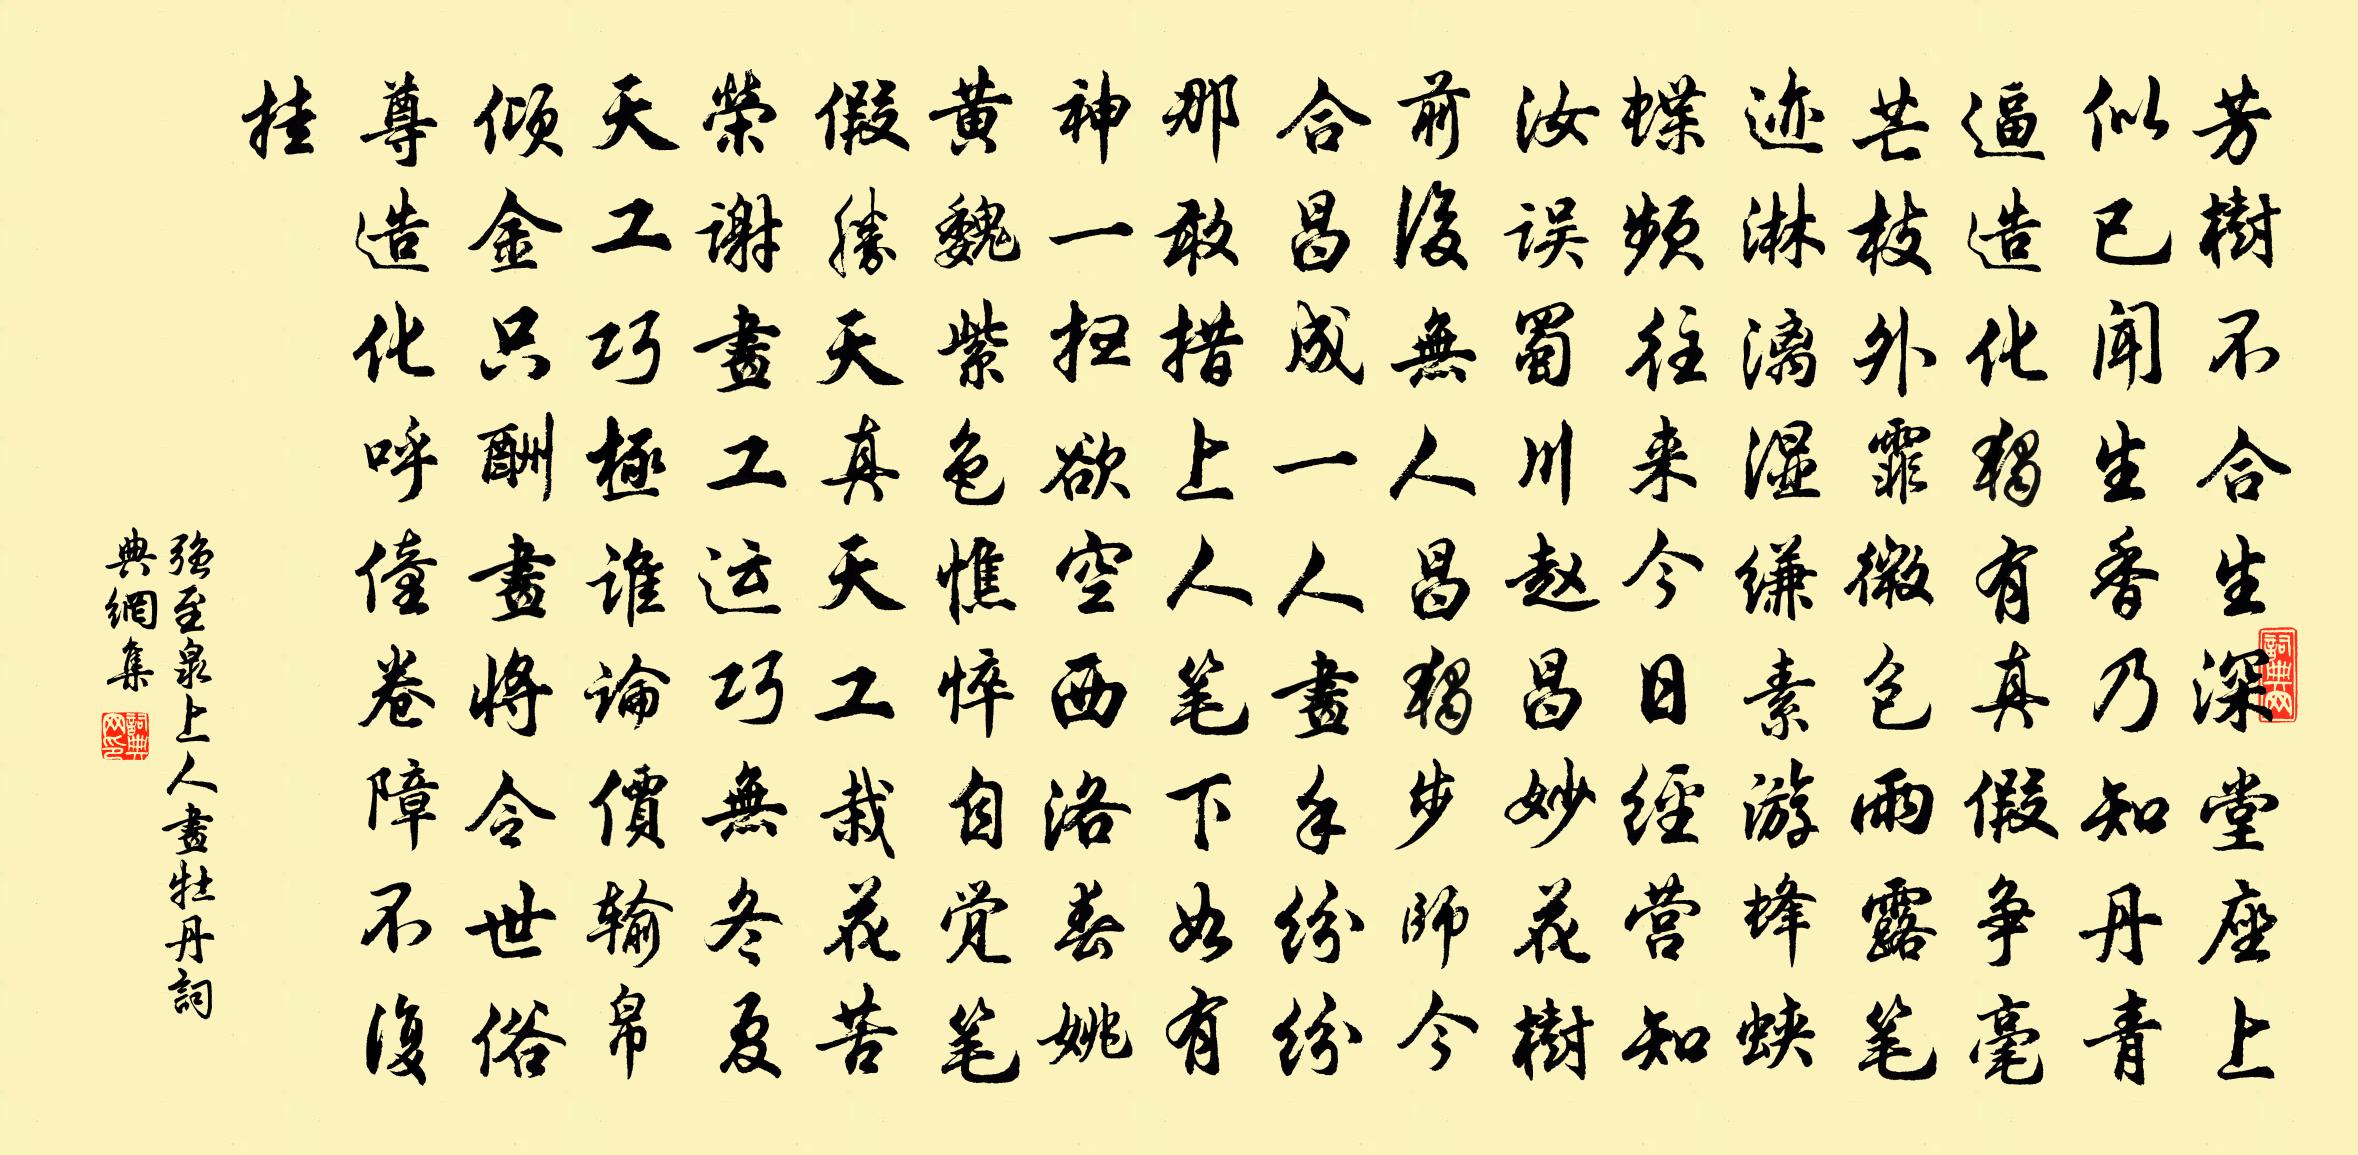 芳樹不合生深堂座上
似已闻生香乃知丹青
逼造化獨有真假争毫
芒枝外霏微包雨露笔
迹淋漓湿缣素游蜂蛱
蝶频往来今日经营知
汝误蜀川赵昌妙花樹
前後無人昌獨步師今
合昌成一人畫手纷纷
那敢措上人笔下如有
神一扫欲空西洛春姚
黄魏紫色憔悴自觉笔
假勝天真天工栽花苦
榮谢畫工运巧無冬夏
天工巧極谁論價输帛
倾金只酬畫將令世俗
尊造化呼僮卷障不復
挂
强至泉上人畫牡丹詞
典網集
詞典网
詞典网印